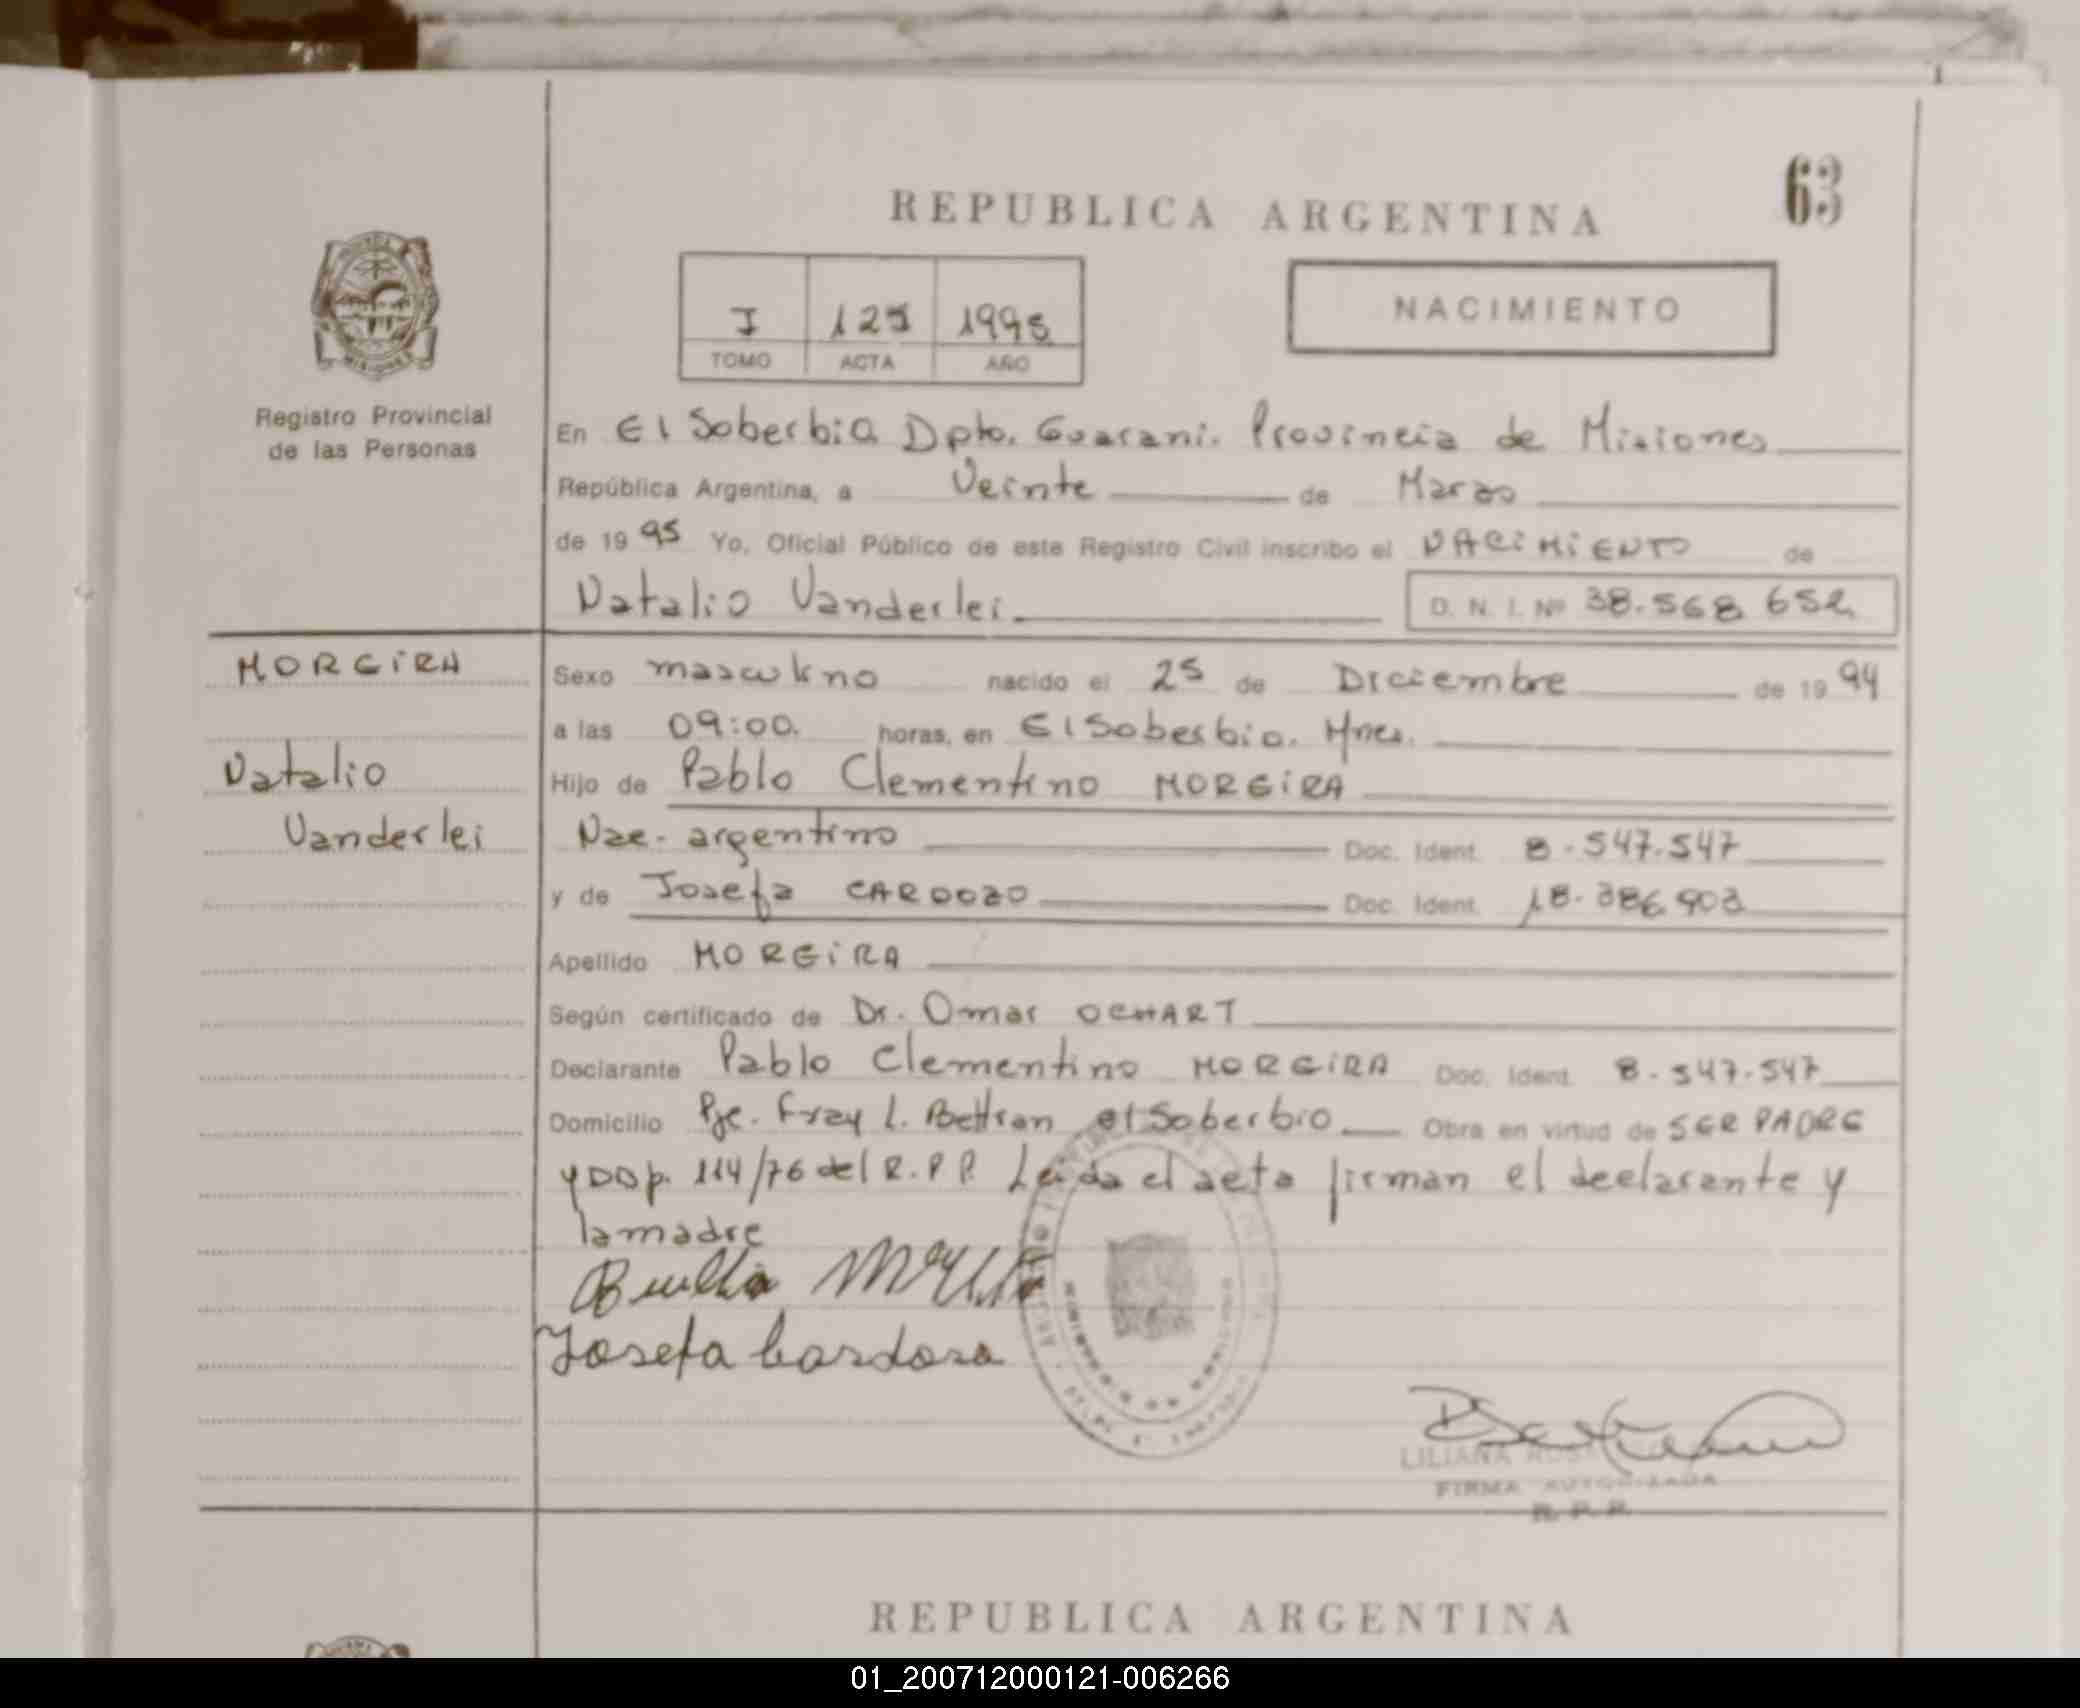 63
REPUBLICA ARGENTINA
NACIMIENTO
I 125 1995
TOMO ACTA AÑO
Registro Provincial
de las Personas
En El Soberbio Dpto. Guarani. Provincia de Misiones
República Argentina, a Veinte de Marzo
de 1995 Yo, Oficial Público de este Registro Civil inscribo el NACIMIENTO de
Natalio Vanderlei D. N. I. Nº 38.568 652
MOREIRA
Natalio
Vanderlei
Sexo masculino nacido el 25 de Diciembre de 1994
a las 09:00. horas, en El Soberbio. Mnes.
Hijo de Pablo Clementino MOREIRA
Nac. argentino Doc. Ident. 8.547.547
y de Josefa CARDOZO Doc. Ident. 18.386.903
Apellido MOREIRA
Según certificado de Dr. Omar OCHART
Declarante Pablo Clementino MOREIRA Doc. Ident. 8.547.547
Domicilio Pje. Fray L. Beltran el Soberbio Obra en virtud de SER PADRE
y Disp. 114/76 del R.P.P. Leida el acta firman el declarante y
la madre
Josefa Cardoso
LILIANA
FIRMA AUTORIZADA
R. P. P.
REPUBLICA ARGENTINA
01_200712000121-006266